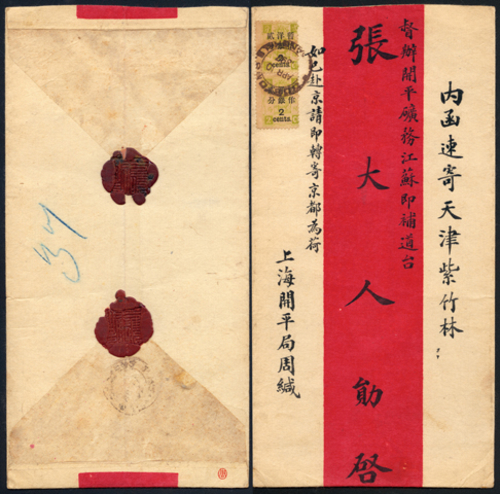 內函速寄天津紫竹林
督辦開平礦務江蘇即補道台
張大人勛啓
如已赴京請即轉寄京都為荷
上海開平局周緘
2
cents.
2
cents.
APR
37